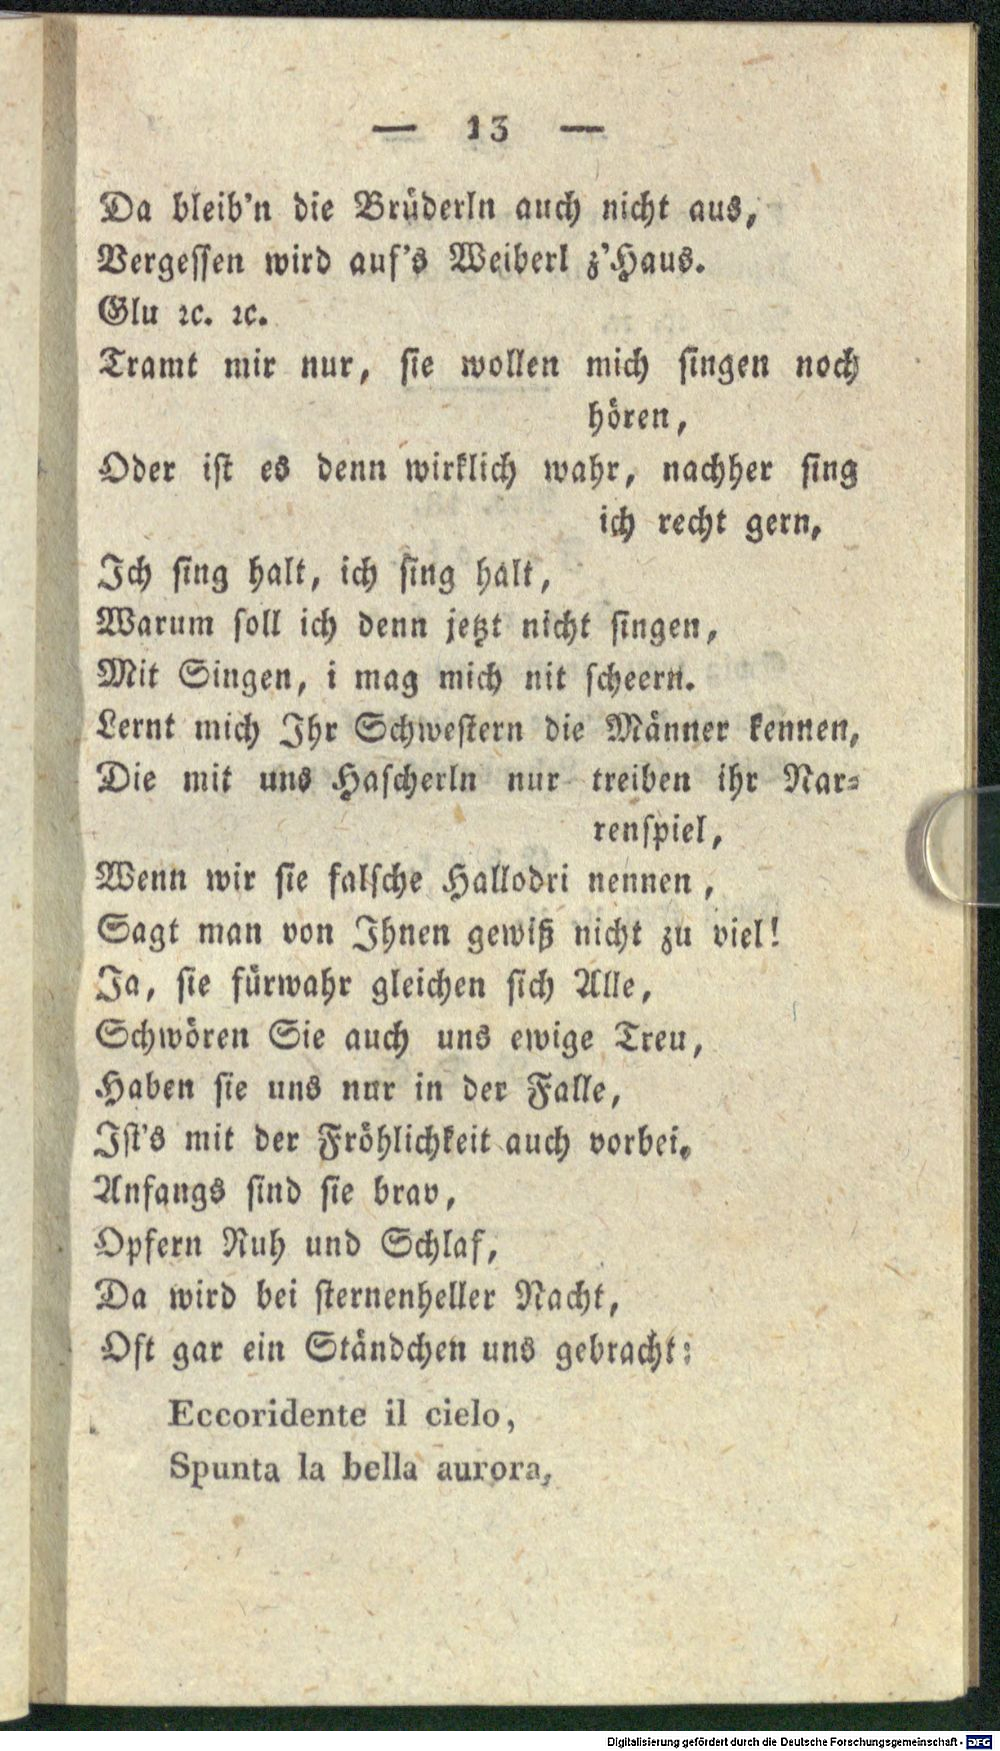 — 13 —
Da bleib'n die Brüderln auch nicht aus,
Vergessen wird auf's Weiberl z'Haus.
Glu ꝛc. ꝛc.
Tramt mir nur, sie wollen mich singen noch
hören,
Oder ist es denn wirklich wahr, nachher sing
ich recht gern,
Ich sing halt, ich sing halt,
Warum soll ich denn jetzt nicht singen,
Mit Singen, i mag mich nit scheern.
Lernt mich Ihr Schwestern die Männer kennen,
Die mit uns Hascherln nur treiben ihr Nar-
renspiel,
Wenn wir sie falsche Hallodri nennen,
Sagt man von Ihnen gewiß nicht zu viel!
Ja, sie fürwahr gleichen sich Alle,
Schwören Sie auch uns ewige Treu,
Haben sie uns nur in der Falle,
Ist's mit der Fröhlichkeit auch vorbei.
Anfangs sind sie brav,
Opfern Ruh und Schlaf,
Da wird bei sternenheller Nacht,
Oft gar ein Ständchen uns gebracht:
Eccoridente il cielo,
Spunta la bella aurora,
Digitalisierung gefördert durch die Deutsche Forschungsgemeinschaft - DFG